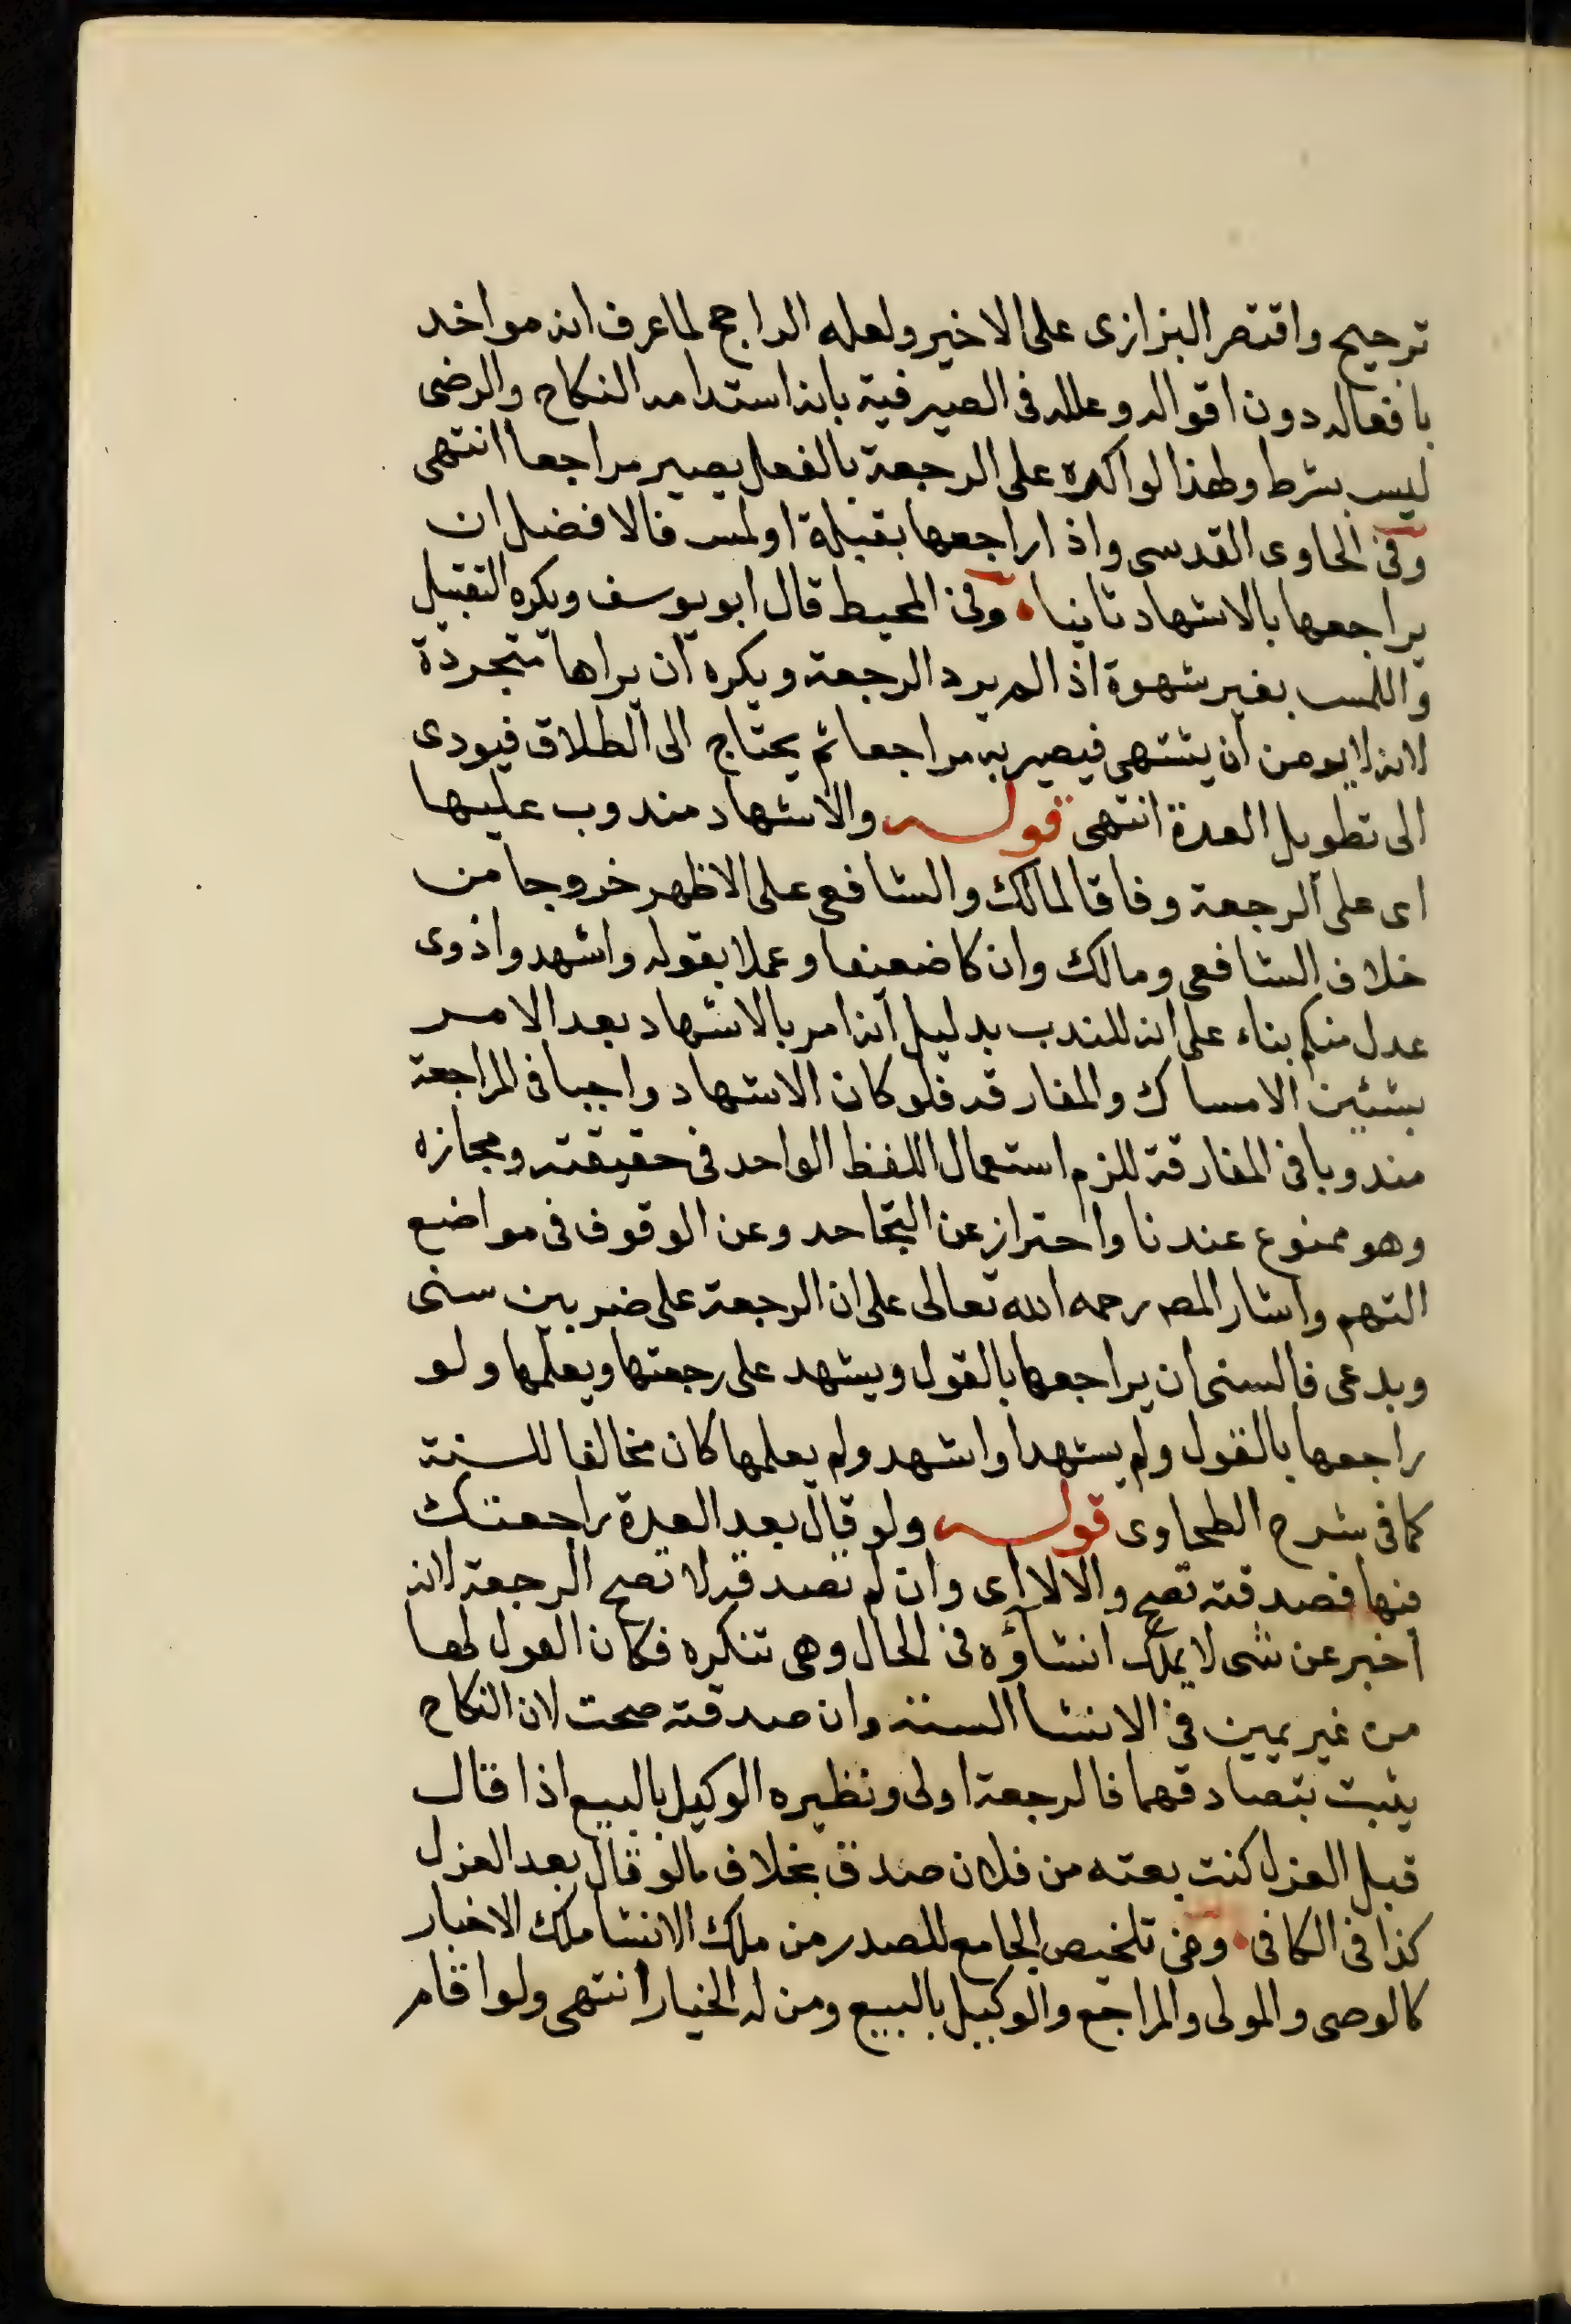 ترجيح واقتصر البزازى على الاخير ولعله الراجح لما عرف انه مواخد
بافعاله دون اقواله وعلله فى الصيرفية بانه استدامة النكاح والرضى
ليس بشرط ولهذا لو اكره على الرجعة بالفعل يصير مراجعا انتهى
وفى الحاوى القدسى واذا راجعها بقبلة او لمس فالافضل ان
يراجعها بالاشهاد ثانيا، وفى المحيط قال ابو يوسف ويكره التقبيل
واللمس بغير شهوة اذا لم يرد الرجعة ويكره ان يراها متجردة
لانه لا يومن ان يشتهى فيصير به مراجعا ثم يحتاج الى الطلاق فيودى
الى تطويل العدة انتهى قوله والاشهاد مندوب عليها
اى على الرجعة وفاقا لمالك والشافعى على الاظهر خروجا من
خلاف الشافعى ومالك وان كا ضعيفا وعملا بقوله واشهدوا ذوى
عدل منكم بناء على انه للندب بدليل انه امر بالاشهاد بعد الامر
بشئين الامساك والمفارقة فلو كان الاشهاد واجبا فى المراجعة
مندوبا فى المفارقة للزم استعمال اللفظ الواحد فى حقيقته ومجازه
وهو ممنوع عندنا واحتراز عن التجاحد وعن الوقوف فى مواضع
التهم واشار المص رحمه الله تعالى على ان الرجعة على ضربين سنى
وبدعى فالسنى ان يراجعها بالقول ويشهد على رجعتها ويعلمها ولو
راجعها بالقول ولم يشهد او اشهد ولم يعلمها كان مخالفا للسنة
كما فى شرح الطحاوى قوله ولو قال بعد العدة راجعتك
فيها فصدقته تصح والا لا اى وان لم تصدقه لا تصح الرجعة لانه
اخبر عن شى لا يملك انشاؤه فى الحال وهى تنكره فكان القول لها
من غير يمين فى الانشا الستة وان صدقته صحت لان النكاح
يثبت بتصادقهما فالرجعة اولى ونظيره الوكيل بالبيع اذا قال
قبل العزل كنت بعته من فلان صدق بخلاف مالو قال بعد العزل
كذا فى الكافى، وفى تلخيص الجامع للصدر من ملك الانشا ملك الاخبار
كالوصى والمولى والمراجع والوكيل بالبيع ومن له الخيار انتهى ولو اقام